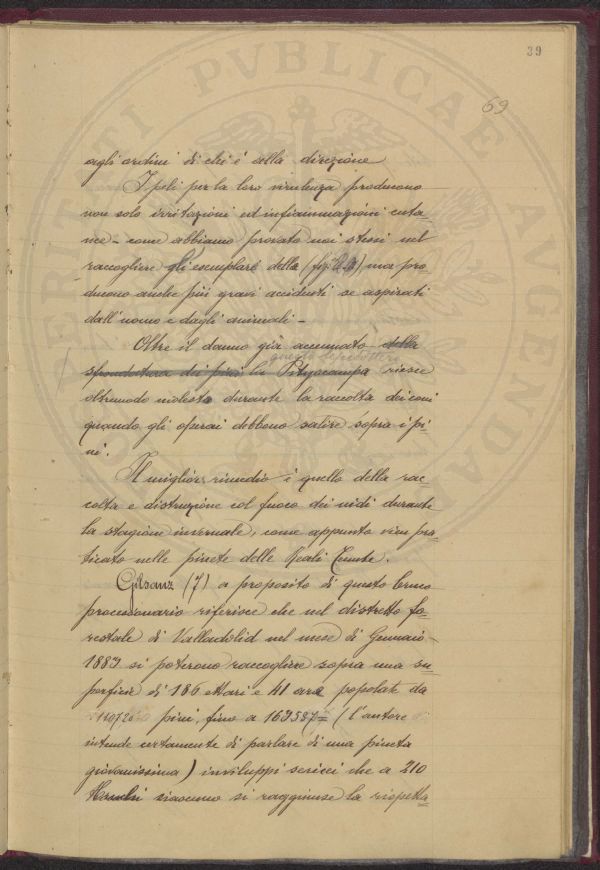 39
69
agli ordini di chi è della direzione
I peli per la loro virulenza producono
non solo irritazioni ed infiammazioni cuta-
nee - come abbiamo provato noi stessi nel
raccogliere gli esemplari della (fig. ) ma pro-
ducono anche più gravi accidenti se aspirati
dall'uomo e dagli animali -
Oltre il danno già accennato della
questo lepidottero
sfrondatura dei pini la Pityocampa riesce
oltremodo molesta durante la raccolta dei coni
quando gli operai debbono salire sopra i pi-
ni.
Il miglior rimedio è quello della rac-
colta e distruzione col fuoco dei nidi durante
la stagione invernale, come appunto vien pra-
ticato nelle pinete delle Reali Tenute.
Gilsanz (7) a proposito di questo bruco
processonario riferisce che nel distretto fo-
restale di Valladolid nel mese di Gennaio
1883 si poterono raccogliere sopra una su-
perficie di 186 ettari e 41 ara popolate da
pini, fino a 163587 = (l'autore
intende certamente di parlare di una pineta
giovanissima) inviluppi sericei che a 210
ciascuno si raggiunse la rispetta-
VERITATI PVBLICAE AVGENDAE